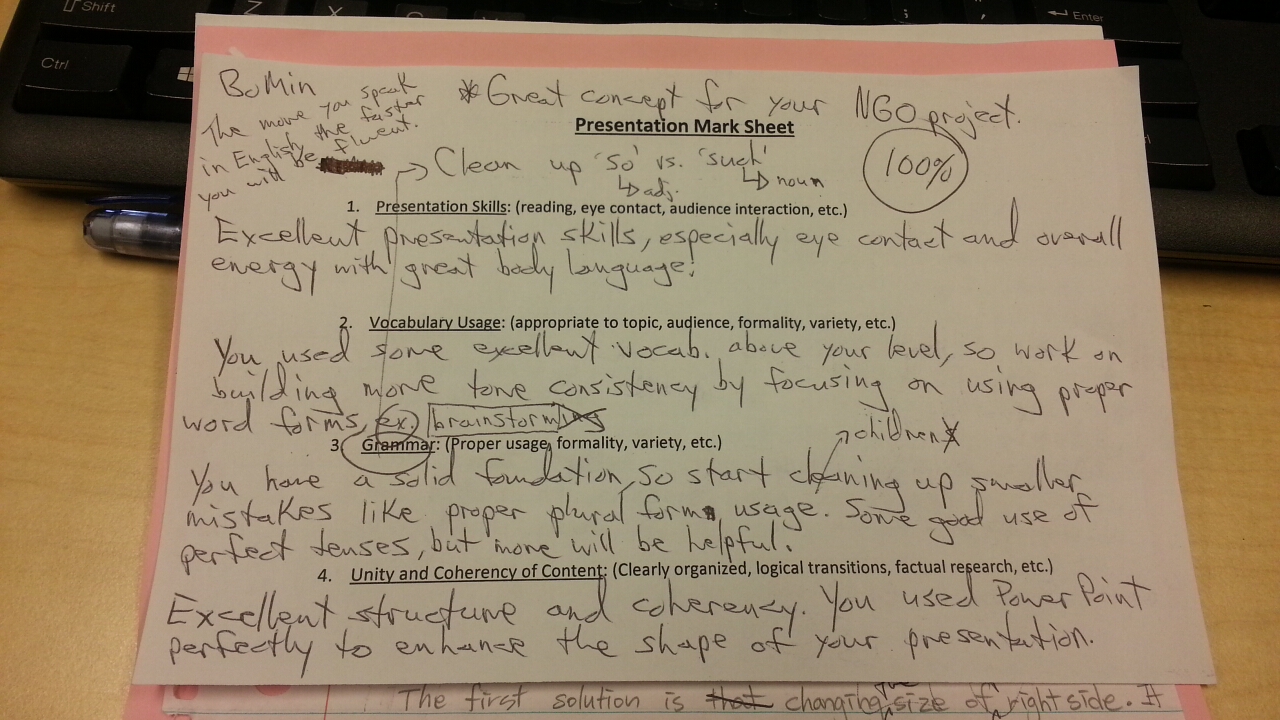 Shift
Z
X
C
;
Enter
Ctrl
BoMin
The more you speak
in English the faster
you will be fluent.
*Great concept for your NGO project.
Presentation Mark Sheet
100%
Clean up 'so' vs. 'such'
↳adj. ↳ noun
1. Presentation Skills: (reading, eye contact, audience interaction, etc.)
Excellent presentation skills, especially eye contact and overall
energy with great body language!
2. Vocabulary Usage: (appropriate to topic, audience, formality, variety, etc.)
You used some excellent vocab. above your level, so work on
building more tone consistency by focusing on using proper
word forms, ex. brainstorming
3 Grammar: (Proper usage, formality, variety, etc.)
childrens
You have a solid foundation, so start cleaning up smaller
mistakes like proper plural form usage. Some good use of
perfect tenses, but more will be helpful.
4. Unity and Coherency of Content: (Clearly organized, logical transitions, factual research, etc.)
Excellent structure and coherency. You used PowerPoint
perfectly to enhance the shape of your presentation.
The first solution is that changing the size of right side. It